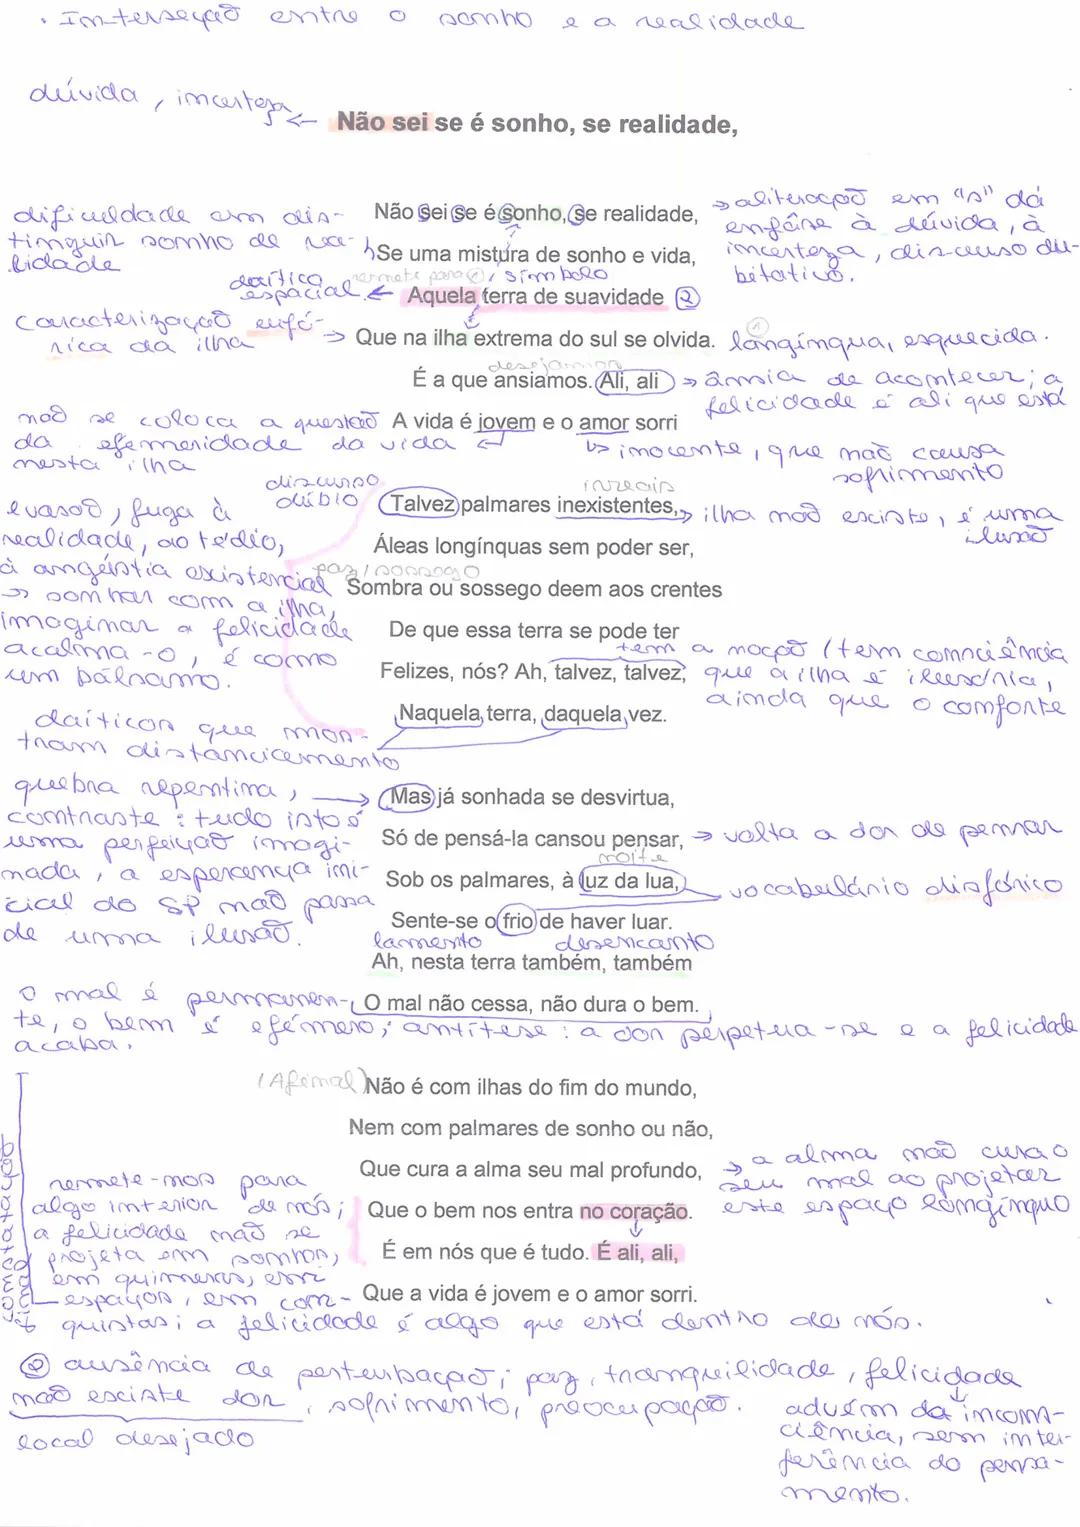 · Interseção entre o sonho e a realidade
dúvida, incerteza ←
Não sei se é sonho, se realidade,
dificuldade em dis-
tinguir sonho de rea-
lidade
Não sei se é sonho, se realidade,
→ aliteração em "s" dá
enfâse à dúvida, à
incerteza, discurso du-
bitativo.
Se uma mistura de sonho e vida,
deítico
espacial ←
remete para ①, símbolo
Aquela terra de suavidade ②
Caracterização eufó-
rica da ilha →
Que na ilha extrema do sul se olvida.
① longínqua, esquecida.
desejamos
É a que ansiamos. Ali, ali
→ ânsia de acontecer; a
felicidade é ali que está
não se coloca a questão
da efemeridade da vida
nesta ilha
A vida é jovem e o amor sorri
↳ inocente, que não causa
sofrimento
discurso
dúbio
irreais
Talvez palmares inexistentes,
→ ilha não existe, é uma
ilusão
evasão, fuga à
realidade, ao tédio,
à angústia existencial
→ sonhar com a ilha,
imaginar a felicidade
acalma-o, é como
um bálsamo.
Áleas longínquas sem poder ser,
paz/sossego
Sombra ou sossego deem aos crentes
De que essa terra se pode ter
Felizes, nós? Ah, talvez, talvez,
tem a noção (tem consciência
que a ilha é ilusória,
ainda que o conforte
Naquela terra, daquela vez.
deíticos que mos-
tram distanciamento
quebra repentina,
contraste: tudo isto é
uma perfeição imagi-
nada, a esperança ini-
cial do SP não passa
de uma ilusão.
Mas já sonhada se desvirtua,
Só de pensá-la cansou pensar,
→ volta a dor de pensar
noite
Sob os palmares, à luz da lua,
vocabulário disfórico
Sente-se o frio de haver luar.
lamento desencanto
Ah, nesta terra também, também
O mal não cessa, não dura o bem.
o mal é permanen-
te, o bem é efémero; antítese: a dor perpetua-se e a felicidade
acaba.
(Afinal) Não é com ilhas do fim do mundo,
Nem com palmares de sonho ou não,
Que cura a alma seu mal profundo,
→ a alma não cura o
seu mal ao projetar
este espaço longínquo
Que o bem nos entra no coração.
É em nós que é tudo. É ali, ali,
Que a vida é jovem e o amor sorri.
remete-nos para
algo interior de nós;
a felicidade não se
projeta em sonhos,
em quimeras, em
espaços, em con-
quistas; a felicidade é algo que está dentro de nós.
② ausência de perturbação; paz, tranquilidade, felicidade
não existe dor, sofrimento, preocupação.
local desejado
advém da incons-
ciência, sem inter-
ferência do pensa-
mento.